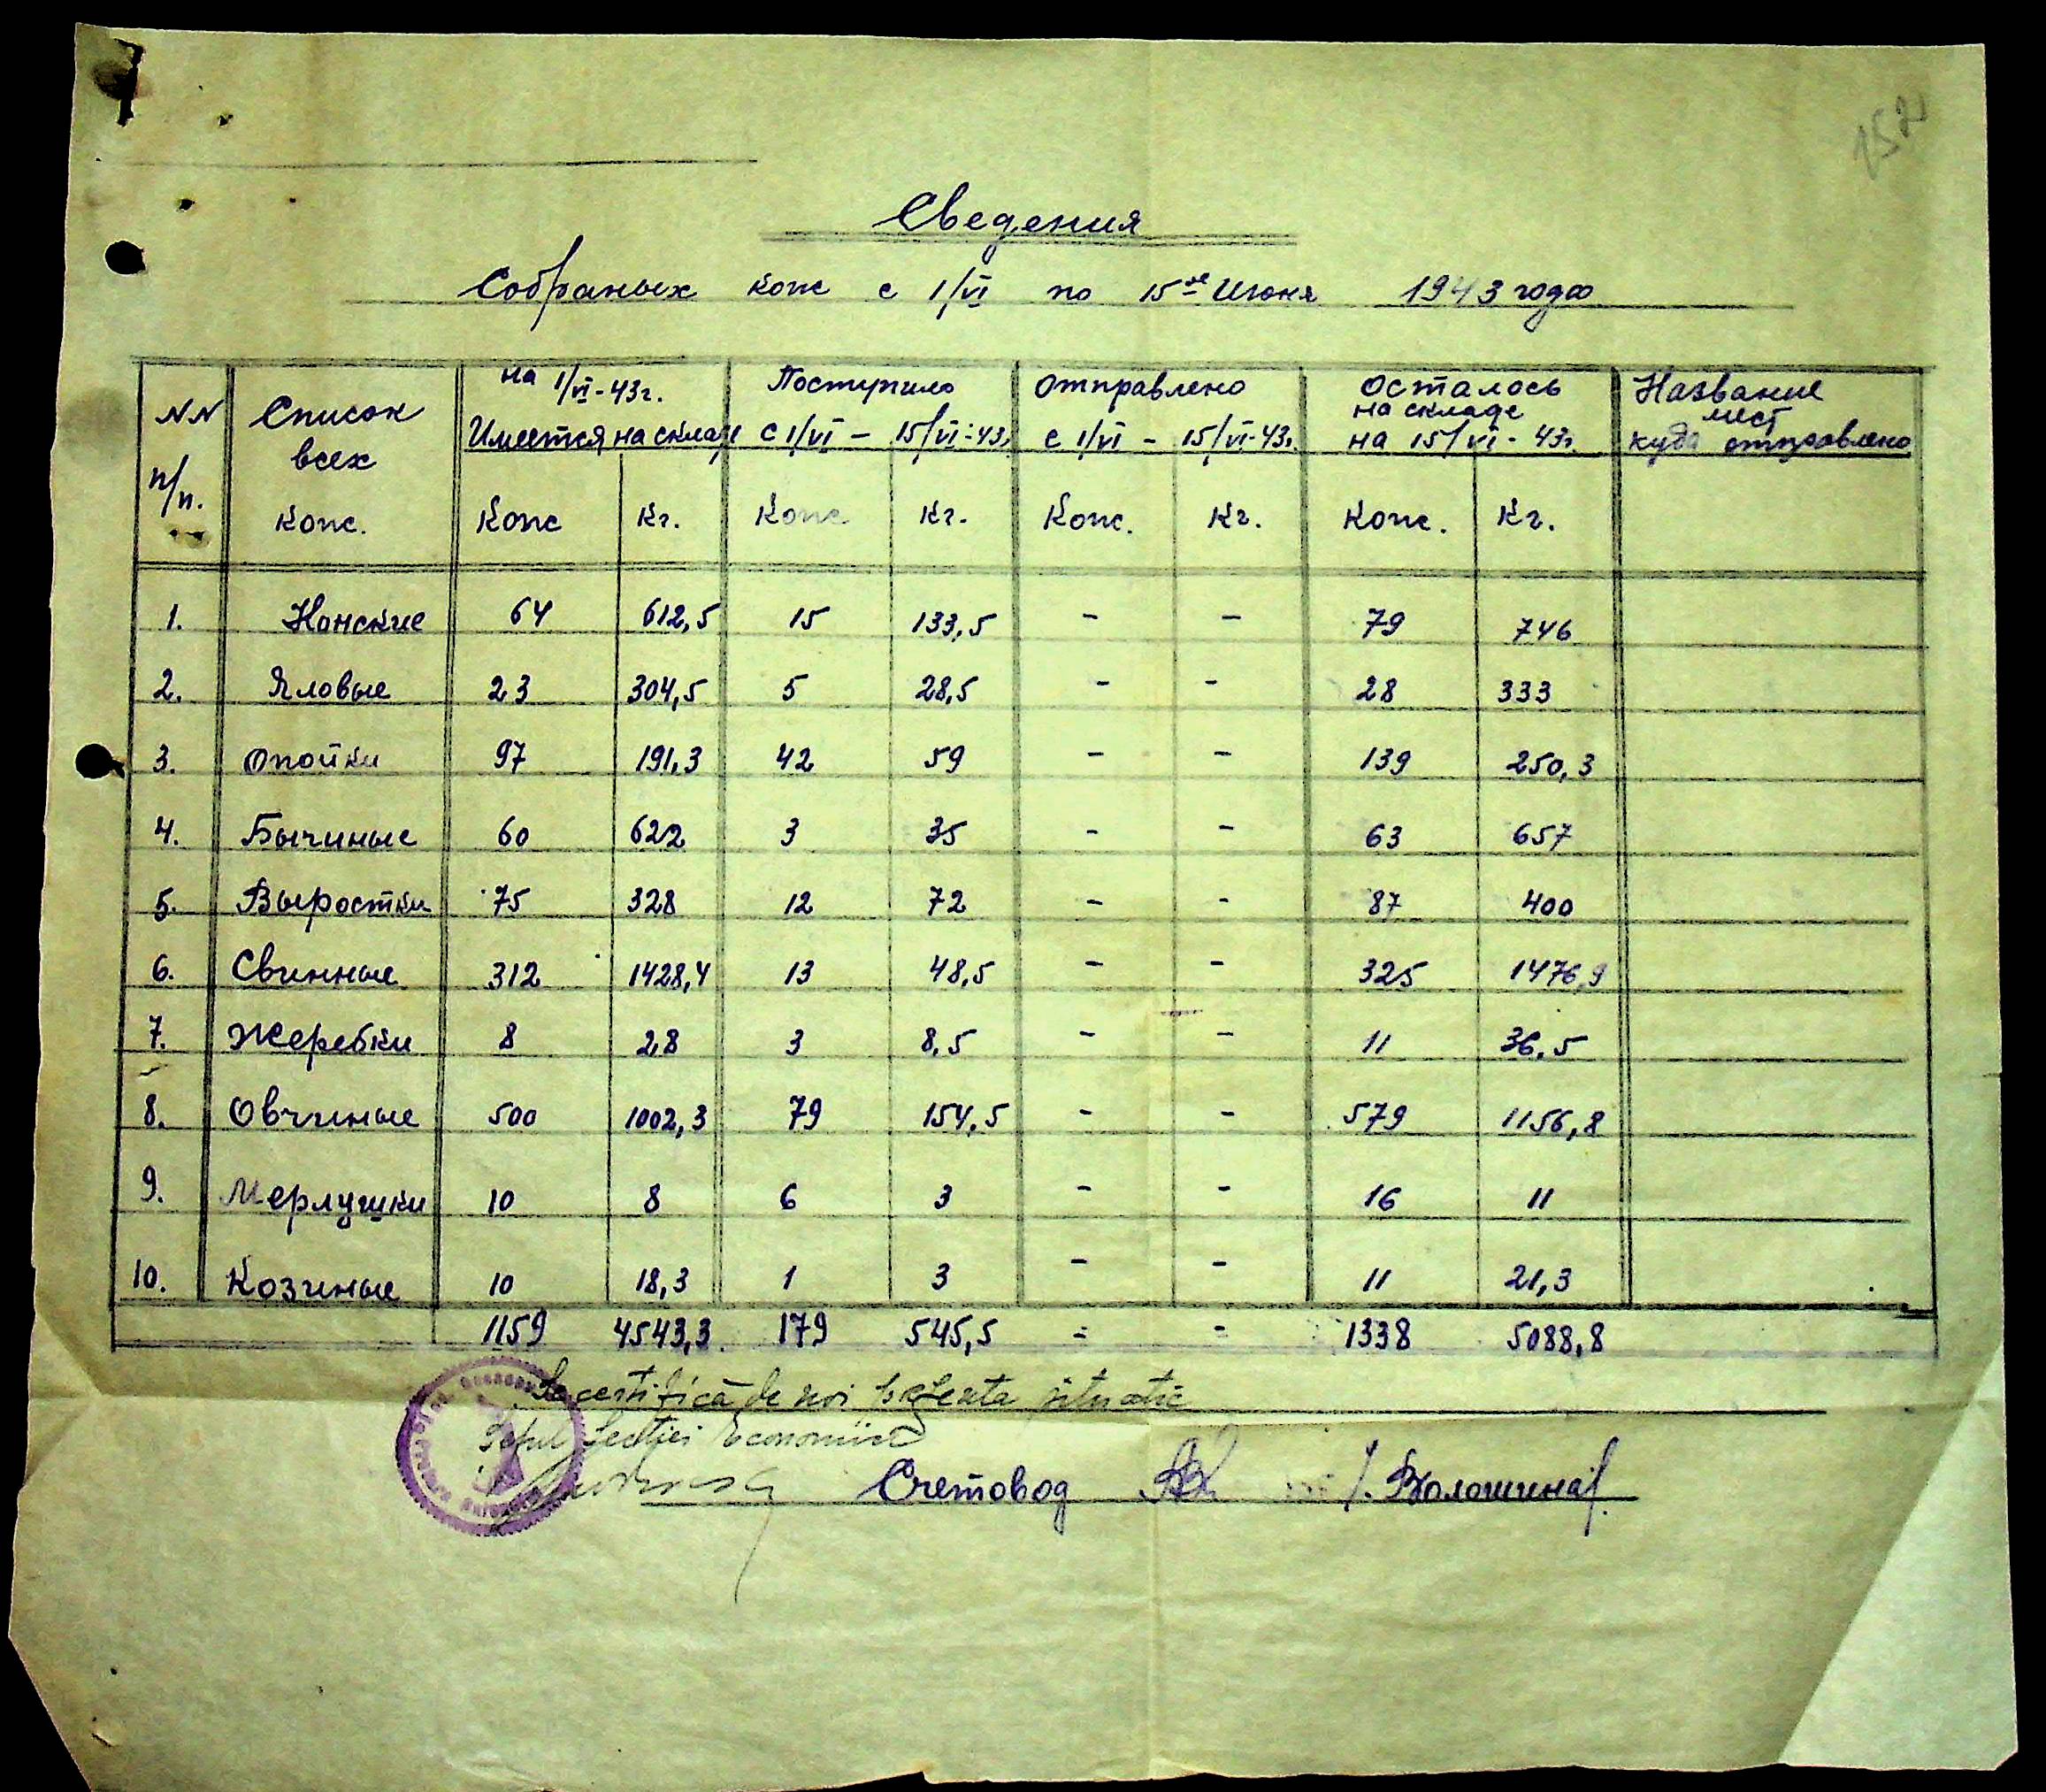 152
Сведения
Собраных кож с 1/VI по 15ое Июня 1943 года
NN п/п. | Список всех кож. | на 1/VI-43г. Имеется на складе | Поступило с 1/VI – 15/VI-43г. | Отправлено с 1/VI – 15/VI-43г. | Осталось на складе на 15/VI-43г. | Название мест куда отправлено
Кож | Кг. | Кож | Кг. | Кож. | Кг. | Кож. | Кг.
1. Конские 64 612,5 15 133,5 – – 79 746
2. Яловые 23 304,5 5 28,5 – – 28 333
3. Опойки 97 191,3 42 59 – – 139 250,3
4. Бычиные 60 622 3 35 – – 63 657
5. Выростки 75 328 12 72 – – 87 400
6. Свинные 312 1428,4 13 48,5 – – 325 1476,9
7. Жеребки 8 28 3 8,5 – – 11 36,5
8. Овчиные 500 1002,3 79 154,5 – – 579 1156,8
9. Мерлушки 10 8 6 3 – – 16 11
10. Козиные 10 18,3 1 3 – – 11 21,3
1159 4543,3 179 545,5 – – 1338 5088,8
Se certifică de noi prezenta situatie
Seful Sectiei Economice
Счетовод /. Волошина/.